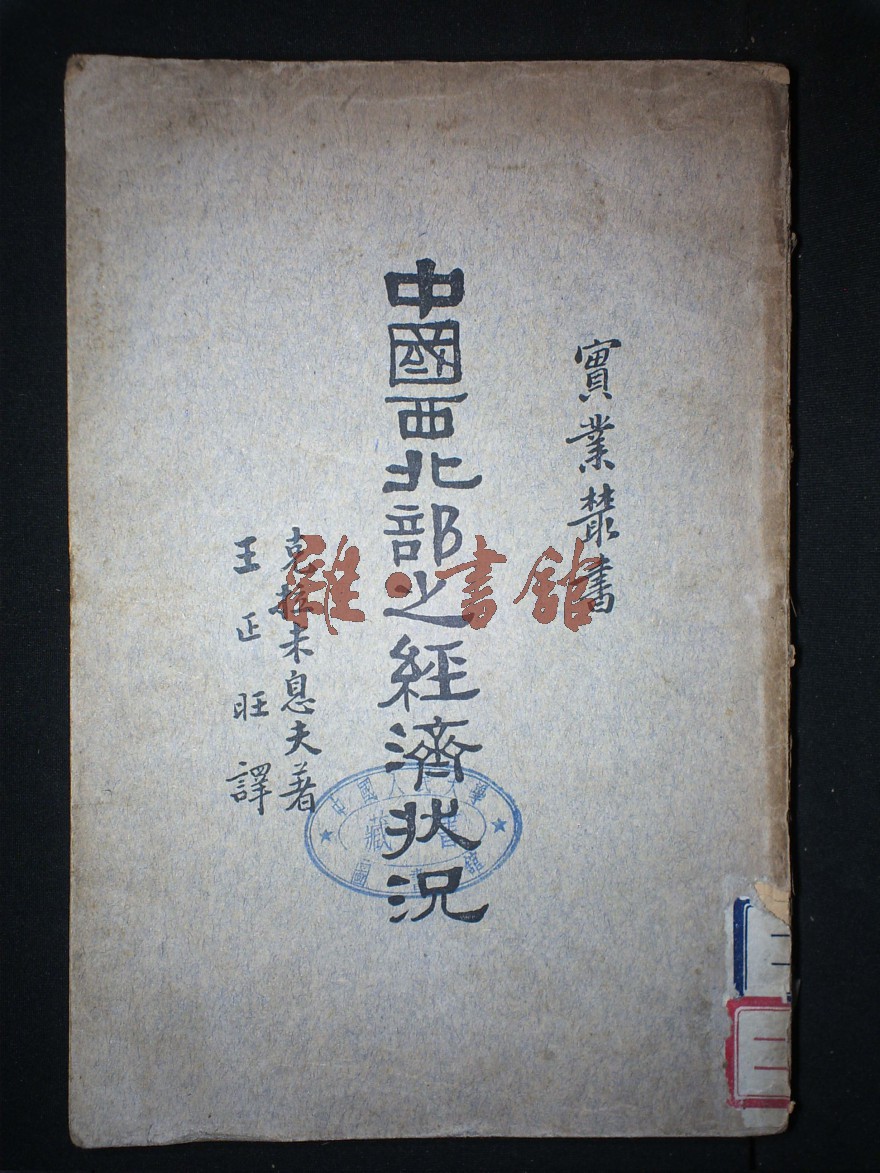 實業叢書
中國西北部之經濟狀況
克拉米息夫著
王正旺譯
雜·書館
中國人民大學
藏書
圖書館